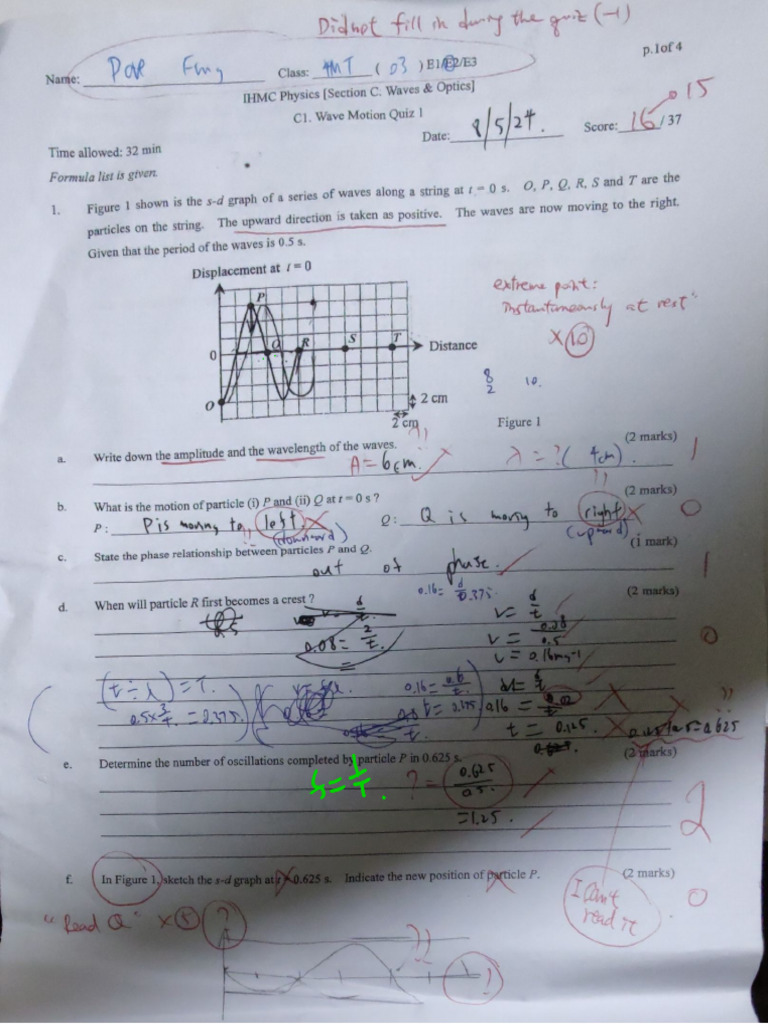 Did not fill in during the quiz (-1)
p.1of 4
Name: Class: 4MT ( 03 ) E1/E2/E3
IHMC Physics [Section C. Waves & Optics]
C1. Wave Motion Quiz 1
15
Date: 8/5/24. Score: 16 / 37
Time allowed: 32 min
Formula list is given.
1. Figure 1 shown is the s-d graph of a series of waves along a string at t = 0 s. O, P, Q, R, S and T are the
particles on the string. The upward direction is taken as positive. The waves are now moving to the right.
Given that the period of the waves is 0.5 s.
Displacement at t = 0
extreme point:
"instantaneously at rest"
×10
P
0 Q R S T Distance
8
2 10.
O
2 cm
2 cm
Figure 1
??
(2 marks)
a. Write down the amplitude and the wavelength of the waves.
A = 6cm. λ = ?( 4cm ). 1
??
(2 marks)
b. What is the motion of particle (i) P and (ii) Q at t = 0 s ?
P : P is moving to left. Q : Q is moving to right 0
(downward) (upward)
(1 mark)
c. State the phase relationship between particles P and Q.
out of phase. 1
(2 marks)
d. When will particle R first becomes a crest ?
v = d/t
0.08 = 2/t.
v = 0.08/0.5
0
v = 0.16ms-1
(t ÷ λ) = T.
t = 0.125
??
(2 marks)
e. Determine the number of oscillations completed by particle P in 0.625 s.
f = 1/T.
? = 0.625/0.5
= 1.25.
2
(2 marks)
f. In Figure 1, sketch the s-d graph at t = 0.625 s. Indicate the new position of particle P.
I can't
read it
0
"Read Q" ×5 ?
??
?